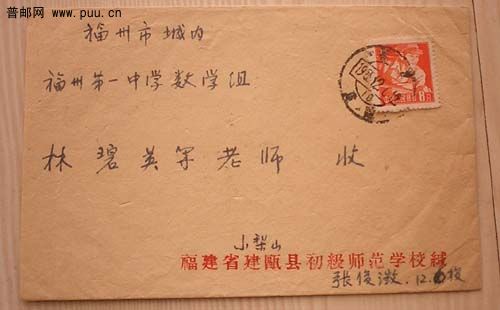 普邮网
www.puu.cn
福州市城内
福州第一中学数学组
林碧英等老师 收
8分
小梨山
福建省建甌县初級师范学校緘
张俊
12.6